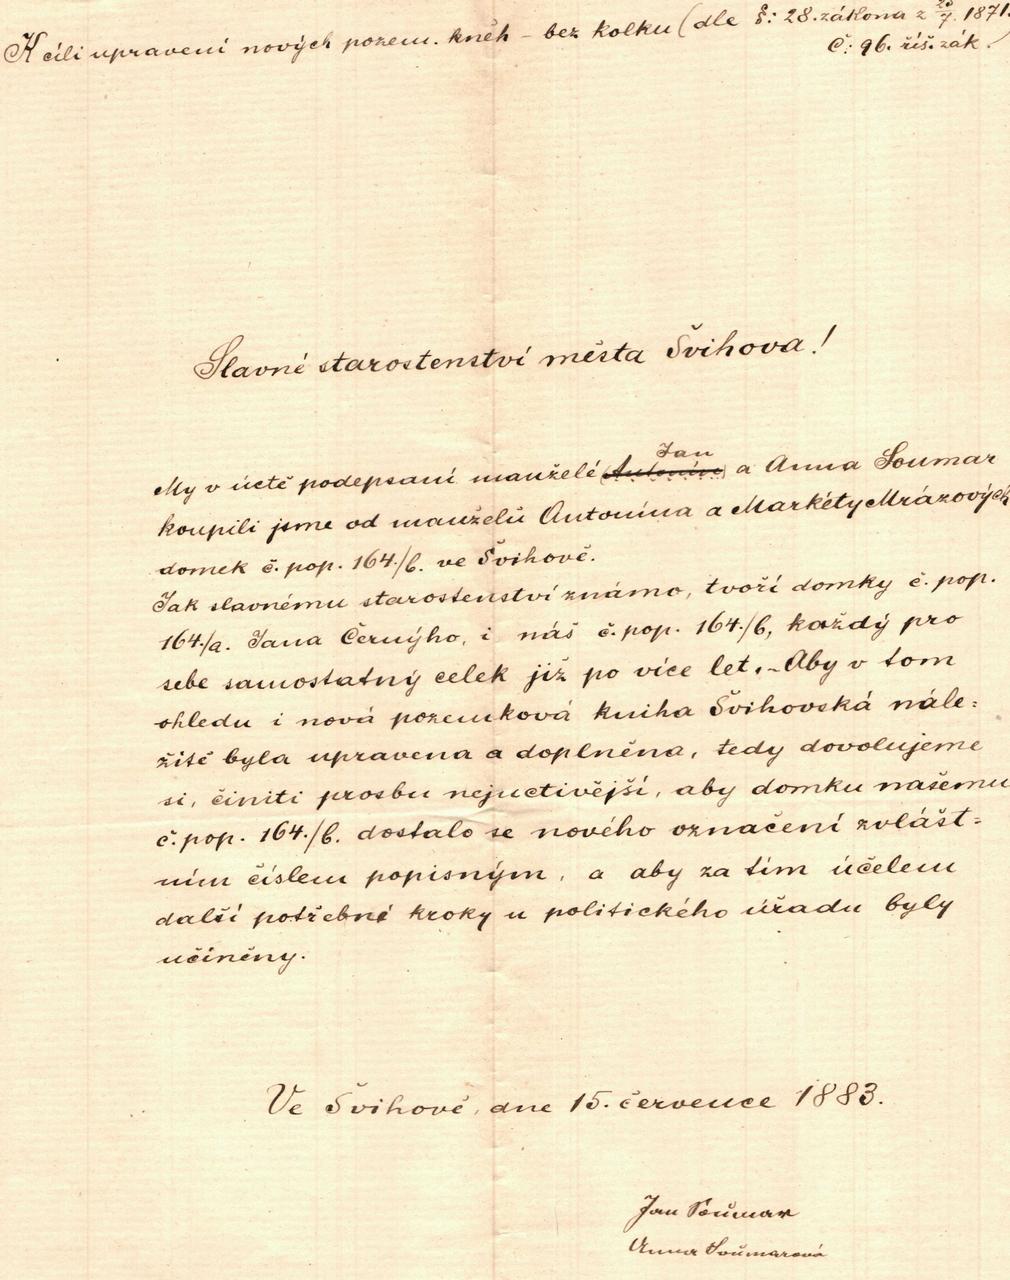 K cíli upravení nových pozem. kněh – bez kolku (dle §: 28. zákona z 25/7. 1871.
Č: 96. říš. zák.)
Slavné starostenství města Švihova!
Jan
My v úctě podepsaní manželé (Antonín) a Anna Soumar
koupili jsme od manželů Antonína a Markéty Mrázových
domek č. pop. 164./b. ve Švihově.
Jak slavnému starostenství známo, tvoří domky č. pop.
164./a. Jana Černýho, i náš č. pop. 164./b, každý pro
sebe samostatný celek již po více let. – Aby v tom
ohledu i nová pozemková kniha Švihovská nále=
žitě byla upravena a doplněna, tedy dovolujeme
si, činiti prosbu nejuctivější, aby domku našemu
č. pop. 164./b. dostalo se nového označení zvlášt=
ním číslem popisným, a aby za tím účelem
další potřebné kroky u politického úřadu byly
učiněny.
Ve Švihově, dne 15. července 1883.
Jan Soumar
Anna Soumarová